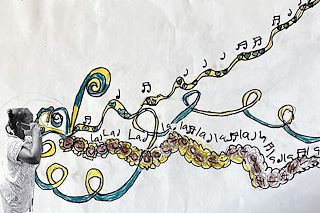 La La La la la la la la la la la